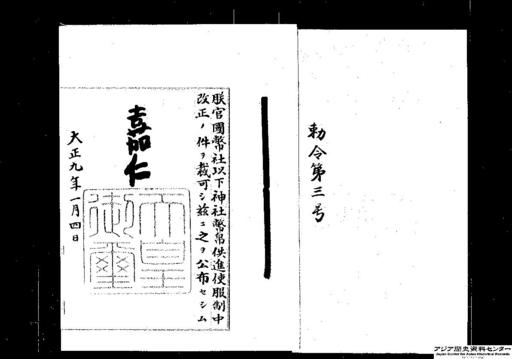 勅令第三号
朕官國幣社以下神社幣帛供進使服制中
改正ノ件ヲ裁可シ茲ニ之ヲ公布セシム
嘉仁
天皇
御璽
大正九年一月四日
アジア歴史資料センター
Japan Center for Asian Historical Records